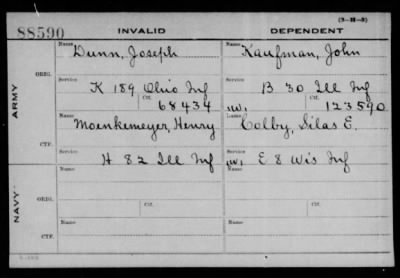 (3-H-3)
88590 INVALID DEPENDENT
Name Dunn, Joseph Name Kaufman, John
ORIG.
Service Service
K 189 Ohio Inf B 30 Ill Inf
Ctf. 68434 Ctf. 123590
ARMY
Name Moenkemeyer, Henry Name Colby, Silas E.
CTF.
Service Service
H 82 Ill Inf E 8 Wis Inf
Ctf. Ctf.
Name Name
ORIG.
Service Service
NAVY
Ctf. Ctf.
Name Name
CTF.